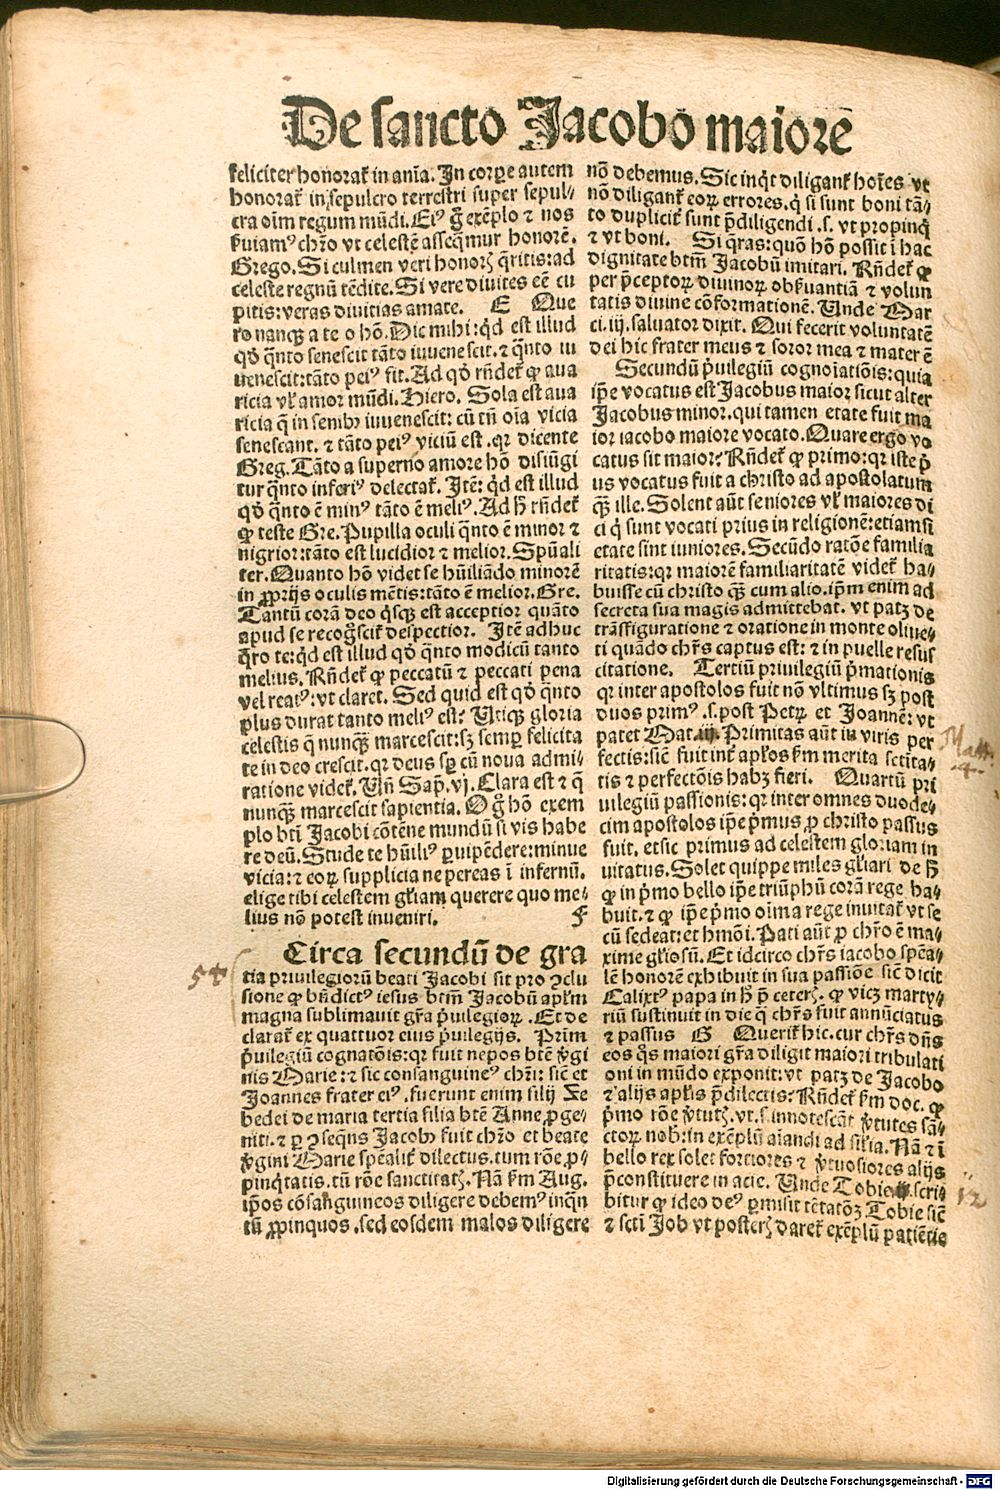 De sancto Jacobo maiorē
feliciter honorat̃ in aĩa. In corpe autem
honorat̃ in sepulcro terrestri super sepul⸗
cra oĩm regum mũdi. Eiꝰ g̃ exẽplo ⁊ nos
ẜuiamꝰ chr̃o vt celestẽ asseq̃mur honorẽ.
Grego. Si culmen veri honorꝭ q̃ritis: ad
celeste regnũ tẽdite. Si vere diuites eẽ cu
pitis: veras diuitias amate. E Que
ro nanqꝫ a te o hõ. Dic mihi: qd̃ est illud
qd̃ q̃nto senescit tãto iuuenescit. ⁊ q̃nto iu
uenescit: tãto peiꝰ fit. Ad qd̃ rñdet̃ ꝙ aua
ricia vl̃ amor mũdi. Hiero. Sola est aua
ricia q̃ in senibꝫ iuuenescit: cũ tñ oĩa vicia
senescant. ⁊ tãto peiꝰ viciũ est. qr dicente
Greg. Tãto a superno amore hõ disiũgi
tur q̃nto inferiꝰ delectat̃. Itẽ: qd̃ est illud
qd̃ q̃nto ẽ minꝰ tãto ẽ meliꝰ. Ad h̃ rñdet̃
ꝙ teste Gre. Pupilla oculi q̃nto ẽ minor ⁊
nigrior: tãto est lucidior ⁊ melior. Spũali
ter. Quanto hõ videt se hũiliãdo minorẽ
in ꝓprijs oculis mẽtis: tãto ẽ melior. Gre.
Tantũ corã deo q̃sqꝫ est acceptior quãto
apud se recog̃scit̃ despectior. Itẽ adhuc
q̃ro te: qd̃ est illud qd̃ q̃nto modicũ tanto
melius. Rñdet̃ ꝙ peccatũ ⁊ peccati pena
vel reatꝰ: vt claret. Sed quid est qd̃ q̃nto
plus durat tanto meliꝰ est? Utiqꝫ gloria
celestis q̃ nunqꝫ marcescit: sꝫ semꝑ felicita
te in deo crescit. qr deus sꝑ cũ noua admi⸗
ratione videt̃. Uñ Sap̃. vj. Clara est ⁊ q̃
nunqꝫ marcescit sapientia. O g̃ hõ exem
plo btĩ Jacobi cõtẽne mundũ si vis habe
re deũ. Stude te hũiliꝰ ꝑuipẽdere: minue
vicia: ⁊ eoꝝ supplicia ne pereas ĩ infernũ.
elige tibi celestem gl̃iam querere quo me⸗
lius nõ potest inueniri. F
Circa secundũ de gra
tia priuilegiorũ beati Jacobi sit pro ꝯclu
sione ꝙ bñdictꝰ iesus btm̃ Jacobũ apl̃m
magna sublimauit gr̃a p̃uilegioꝝ. Et de
clarat̃ ex quattuor eius p̃uilegijs. Prim̃
p̃uilegiũ cognatõis: qr fuit nepos btẽ v̓gi
nis Marie: ⁊ sic consanguineꝰ chr̃i: sic̃ et
Joannes frater eiꝰ. fuerunt enim filij Ze
bedei de maria tertia filia btẽ Anne ꝓge⸗
niti. ⁊ ꝑ ꝯseq̃ns Jacobꝰ fuit chr̃o et beate
v̓gini Marie spẽalit̃ dilectus. tum rõe ꝓ⸗
pinq̃tatis. tũ rõe sanctitatꝭ. Nã ẜm Aug.
ip̃os cõsanguineos diligere debemꝰ inq̃n
tũ ꝓpinquos. sed eosdem malos diligere
nõ debemus. Sic inq̃t diligant̃ hoĩes vt
nõ diligant̃ eoꝝ errores. q̃ si sunt boni tã⸗
to duplicit̃ sunt p̃diligendi. s. vt propinq̃
⁊ vt boni. Si q̃ras: quõ hõ possit ĩ hac
dignitate btm̃ Jacobũ imitari. Rñdet̃ ꝙ
per p̃ceptoꝝ diuinoꝝ obẜuantiã ⁊ volun
tatis diuine cõformationẽ. Unde Mar
ci. iij. saluator dixit. Qui fecerit voluntatẽ
dei hic frater meus ⁊ soror mea ⁊ mater ẽ
Secundũ p̃uilegiũ cognoĩatiõis: quia
ip̃e vocatus est Jacobus maior sicut alter
Jacobus minor. qui tamen etate fuit ma
ior iacobo maiore vocato. Quare ergo vo
catus sit maior? Rñdet̃ ꝙ primo: qr iste p̃
us vocatus fuit a christo ad apostolatum
qꝫ ille. Solent aũt seniores vl̃ maiores di
ci q̃ sunt vocati prius in religionẽ: etiamsi
etate sint iuniores. Secũdo ratõe familia
ritatis: qr maiorẽ familiaritatẽ videt̃ ha⸗
buisse cũ christo qꝫ cum alio. ip̃m enim ad
secreta sua magis admittebat. vt patꝫ de
trãsfiguratione ⁊ oratione in monte oliue⸗
ti quãdo chr̃s captus est: ⁊ in puelle resus
citatione. Tertiũ priuilegiũ p̃mationis
qr inter apostolos fuit nõ vltimus sꝫ post
duos primꝰ. s. post Petꝝ et Joannẽ: vt
patet Mat. Primitas aũt in viris per
fectis: sic̃ fuit int̃ apl̃os ẜm merita sctĩta⸗
tis ⁊ perfectõis habꝫ fieri. Quartũ pri
uilegiũ passionis: qr inter omnes duode⸗
cim apostolos ip̃e p̃mus ꝓ christo passus
fuit. et sic primus ad celestem gloriam in
uitatus. Solet quippe miles gl̃iari de h̃
ꝙ in p̃mo bello ip̃e triũphũ corã rege ha⸗
buit. ⁊ ꝙ ip̃e p̃mo oĩm a rege inuitat̃ vt se
cũ sedeat: et hmõi. Pati aũt ꝓ chr̃o ẽ ma⸗
xime gl̃iosũ. Et idcirco chr̃s iacobo spẽca⸗
lẽ honorẽ exhibuit in sua passiõe sic̃ dicit
Calixtꝰ papa in h̃ p̃ ceterꝭ. ꝙ vicꝫ marty⸗
riũ sustinuit in die q̃ chr̃s fuit annũciatus
⁊ passus G Querit̃ hic. cur chr̃s dñs
eos q̃s maiori gr̃a diligit maiori tribulati
oni in mũdo exponit: vt patꝫ de Jacobo
⁊ alijs apl̃is p̃dilectis? Rñdet̃ ẜm doc. ꝙ
p̃mo rõe v̓tutꝭ. vt. s. innotescãt v̓tutes sã⸗
ctoꝝ nob̃: in exẽplũ aĩandi ad sil̃ia. Nã ⁊ ĩ
bello rex solet fortiores ⁊ v̓tuosiores alijs
p̃constituere in acie. Unde Tobie scri⸗
bitur ꝙ ideo deꝰ ꝑmisit tẽtatõꝫ Tobie sic̃
⁊ scti Job vt posterꝭ daret̃ exẽplũ patiẽtie
54
Matt.
4
12
Digitalisierung gefördert durch die Deutsche Forschungsgemeinschaft - DFG